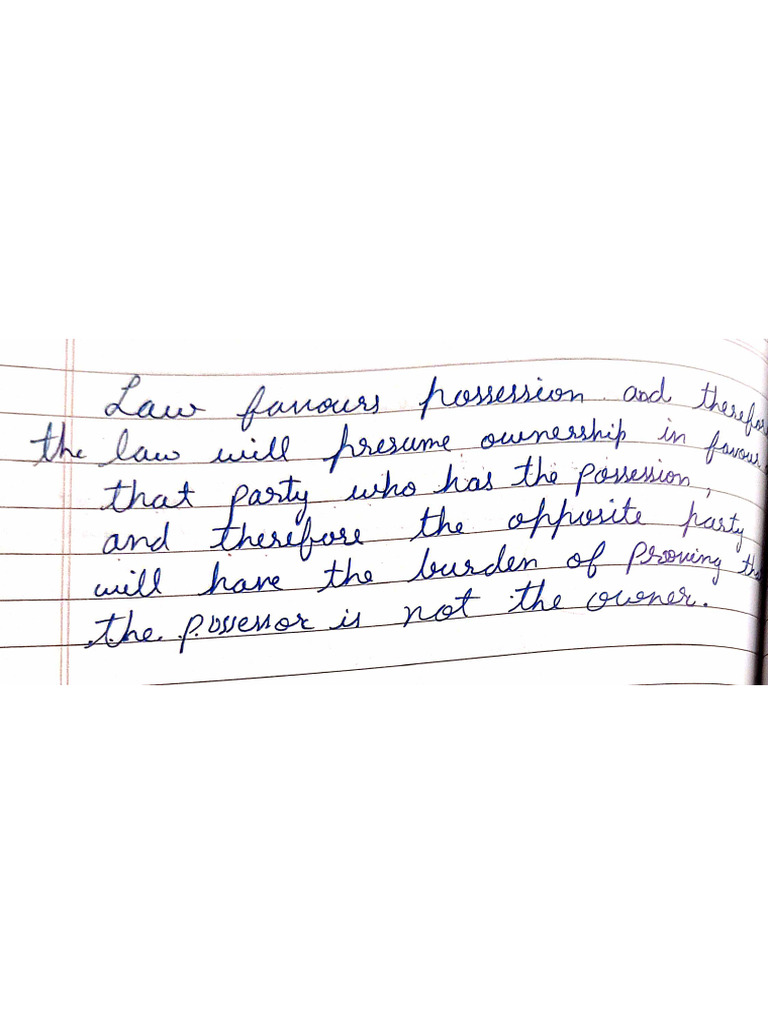 Law favours possession and therefor
the law will presume ownership in favour
that party who has the possession,
and therefore the opposite party
will have the burden of proving th
the possessor is not the owner.